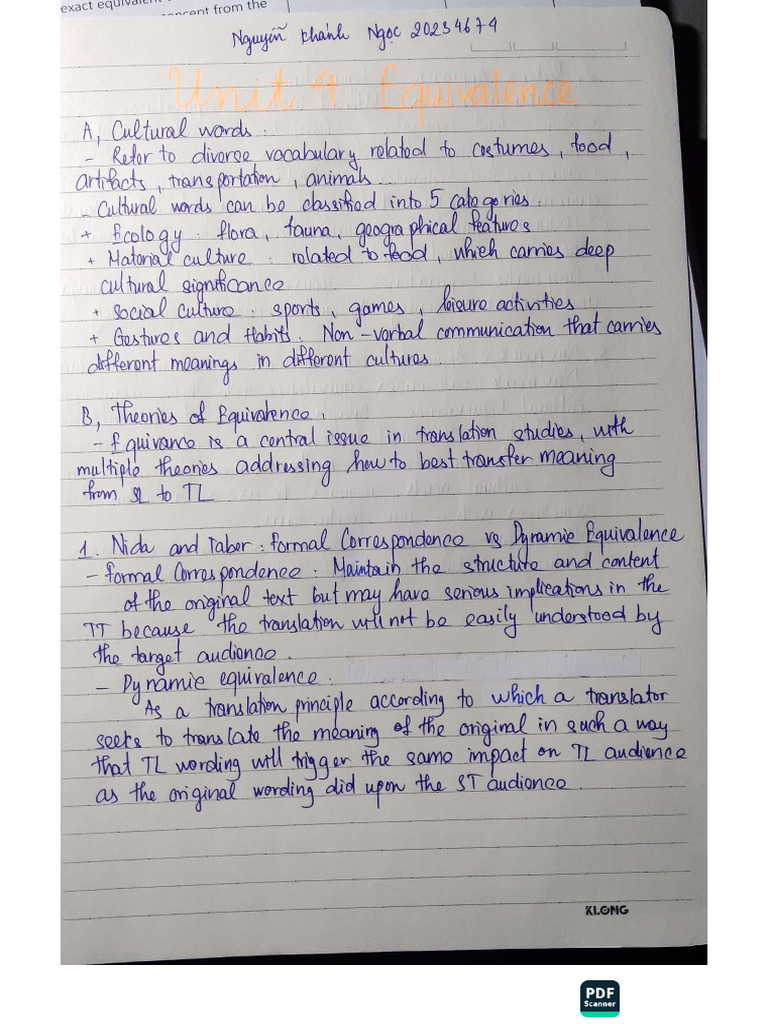 exact equivalent
concept from the
Nguyễn Khánh Ngọc 20234674
Unit 4 Equivalence
A, Cultural words:
- Refer to diverse vocabulary related to costumes, food,
artifacts, transportation, animals
- Cultural words can be classified into 5 categories:
+ Ecology: flora, fauna, geographical features
+ Material culture: related to food, which carries deep
cultural significance
+ Social culture: sports, games, leisure activities
+ Gestures and Habits: Non-verbal communication that carries
different meanings in different cultures.
B, Theories of Equivalence:
- Equivance is a central issue in translation studies, with
multiple theories addressing how to best transfer meaning
from SL to TL
1. Nida and Taber: Formal Correspondence vs Dynamic Equivalence
- Formal Correspondence: Maintain the structure and content
of the original text but may have serious implications in the
TT because the translation will not be easily understood by
the target audience.
- Dynamic equivalence:
As a translation principle according to which a translator
seeks to translate the meaning of the original in such a way
that TL wording will trigger the same impact on TL audience
as the original wording did upon the ST audience.
KLONG
PDF
Scanner